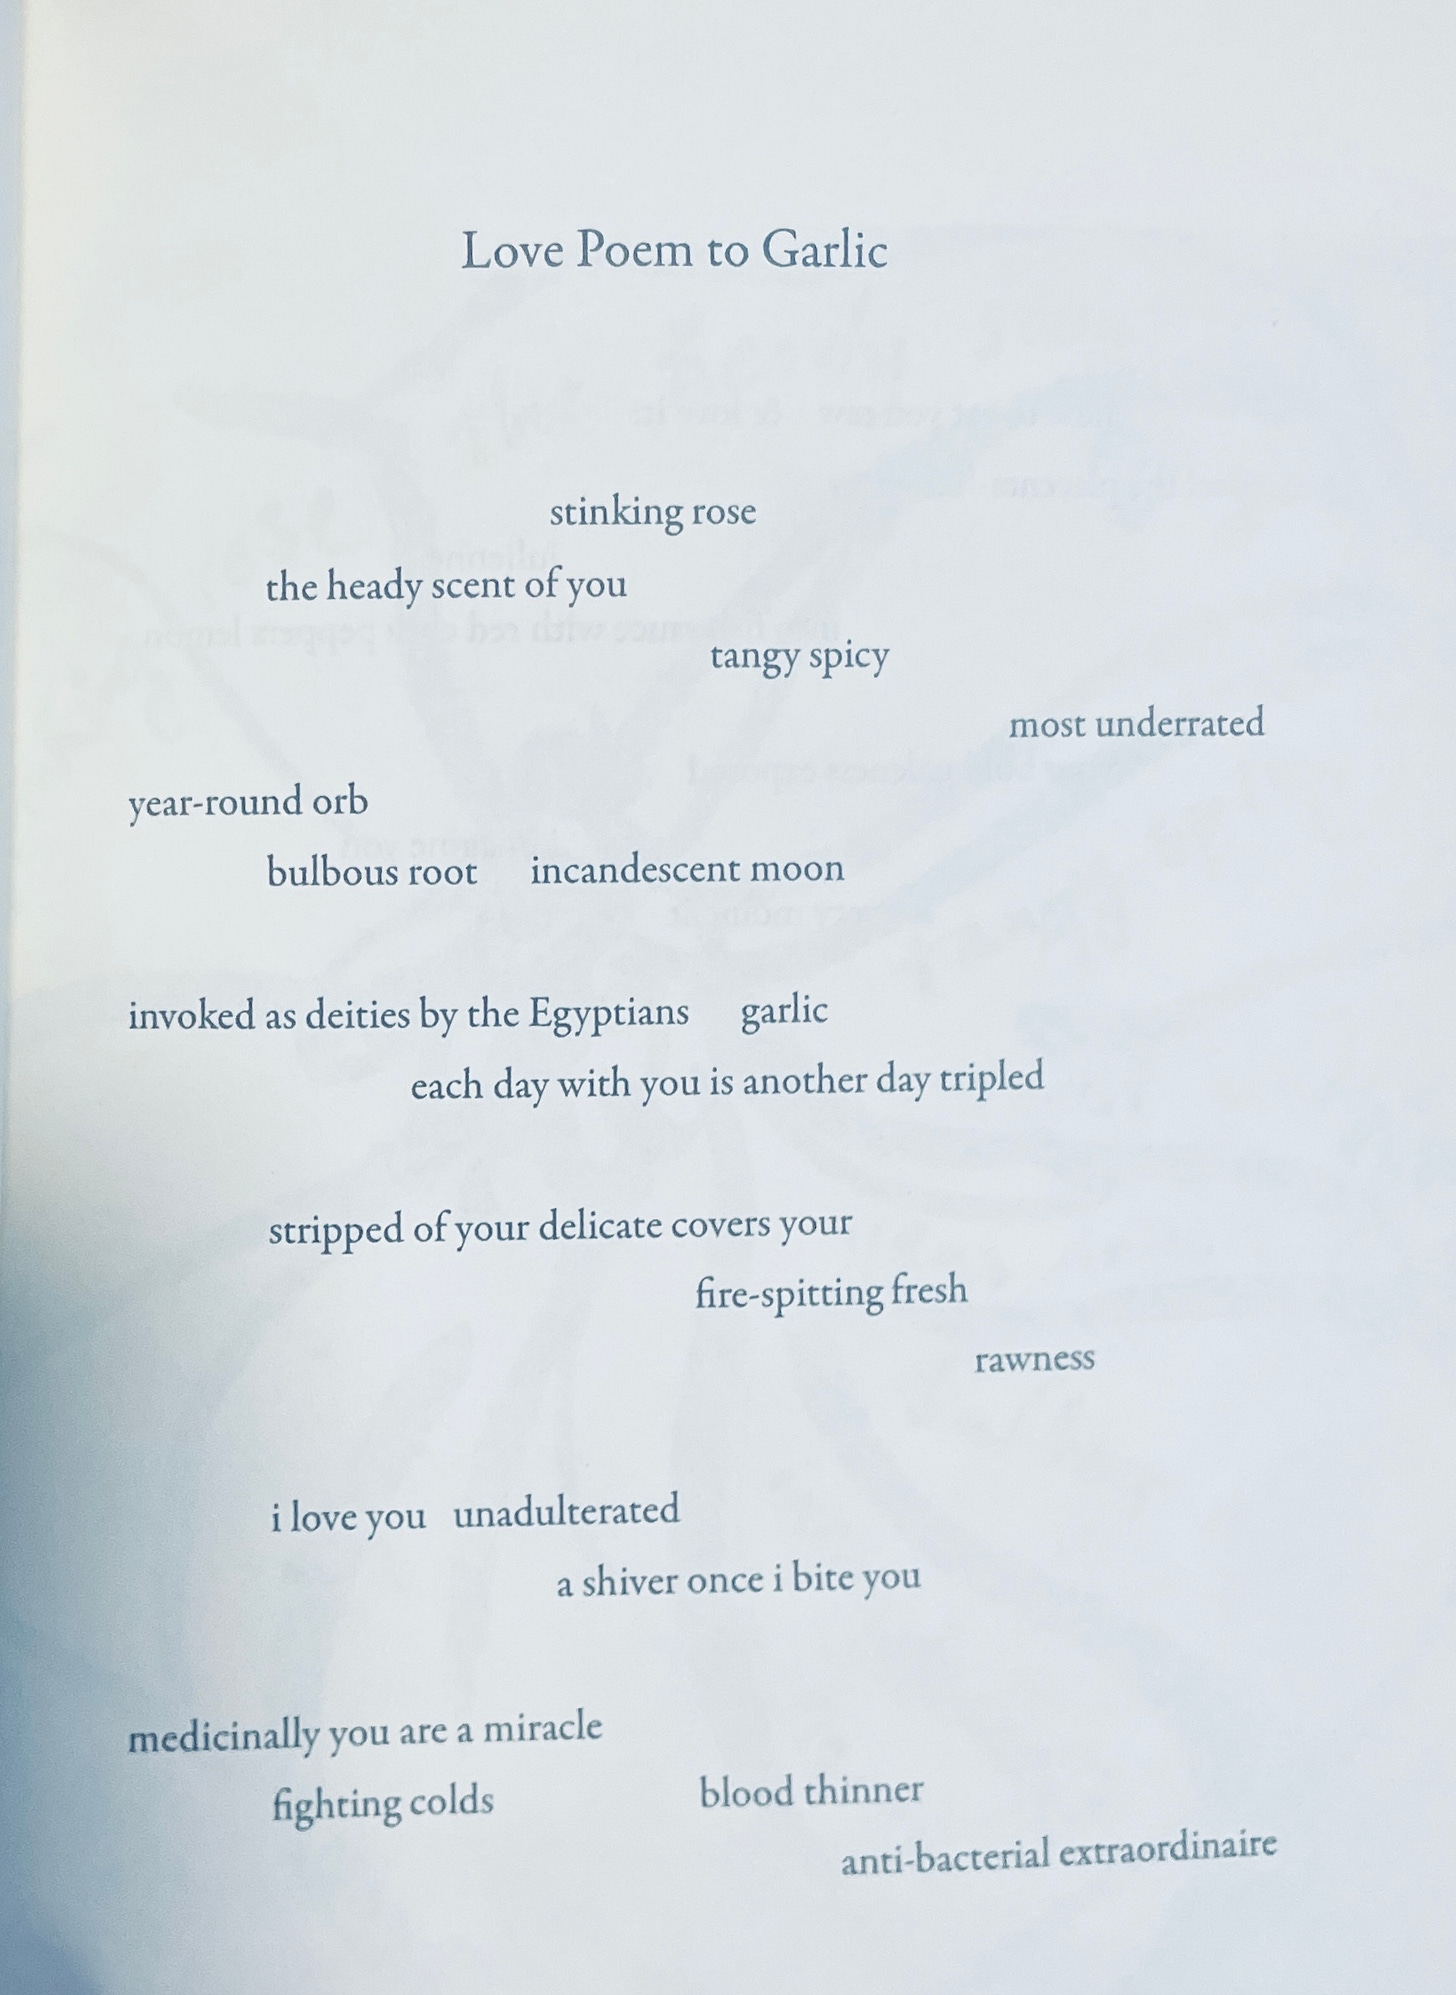 Love Poem to Garlic
stinking rose
the heady scent of you
tangy spicy
most underrated
year-round orb
bulbous root incandescent moon
invoked as deities by the Egyptians garlic
each day with you is another day tripled
stripped of your delicate covers your
fire-spitting fresh
rawness
i love you unadulterated
a shiver once i bite you
medicinally you are a miracle
fighting colds blood thinner
anti-bacterial extraordinaire